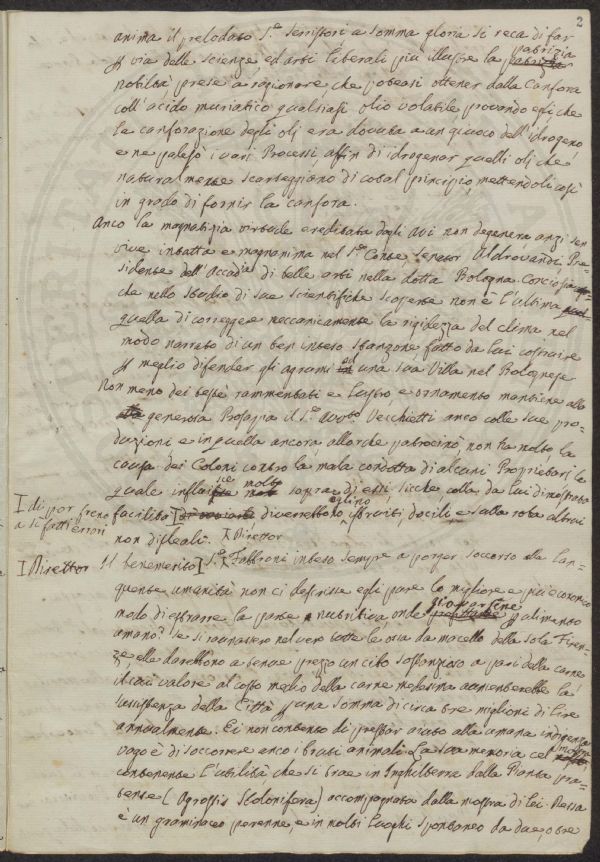 2
anima il prelodato S.e scrittori e somma gloria si reca di far
p via delle scienze ed arti liberali più illustre la patrizia
nobiltà prese a ragionare che poteasi ottener dalla Canfora
coll'acido muriatico qualsiasi olio volatile provando egli che
la canforazione degli olj era dovuta a un giuoco dell'idrogeno
e ne palesò i varj Processi, affin di idrogenar quelli olj che
naturalmente scarseggiano di cotal principio, mettendoli così
in grado di fornir la canfora.
Anco la magnatizia virtude ereditata dagli Avi non degenera anzi sen
vive intatta e magnanima nel S.e Conte Senator Aldrovandi Pre-
sidente dell'Accad.ia di belle arti nella dotta Bologna. Conciossia
che nello stuolo di sue scientifiche scoperte non è l'ultima
quella di correggere meccanicamente la rigidezza del clima nel
modo narrato di un ben inteso stanzone fatto da lui costruire
p meglio difender gli agrumi ad una sua Villa nel Bolognese
Non meno dei testè rammentati e lustro e ornamento mantiene alla
generosa Prosapia il S.e Avv.to Vecchietti anco colle sue pro-
duzioni e in quella ancora allorche patrocinò non ha molto la
causa dei Coloni contro la mala condotta di alcuni Proprietarj la
quale influisce molto sopra di essi, sicche colla da lui dimostrata
facilità diverrebbono eglino istruiti, docili, e sulla roba altrui
I di por freno
a sì fatti errori
non disleali.
I Direttor
Il benemerito I S.e Fabbroni inteso sempre a porger soccorso alla lan-
I Direttor
guente umanità non ci descrisse egli pare lo migliore e più economico
modo di estrarre la parte nutritiva onde giovarsene p alimento
umano? Se si raunassero nel vero tutte le ossa da macello della sola Firen-
ze elle darebbono a tenue prezzo un cibo sostanzioso a pari della carne
il cui valore al costo medio della carne medesima aumenterebbe la
sussistenza della Città p una somma di circa tre miglioni di lire
annualmente. Ei non contento di prestar aiuto alla umana indigenza
vago è di soccorrere anco i bruti animali. La sua memoria
contenente l'utilità che si trae in Inghilterra dalla Pianta pra-
tense (Agrostis Stolonifera) accompagnata dalla mostra di lei. Dessa
è un graminaceo perenne, e in molti luoghi spontaneo da due, o tre